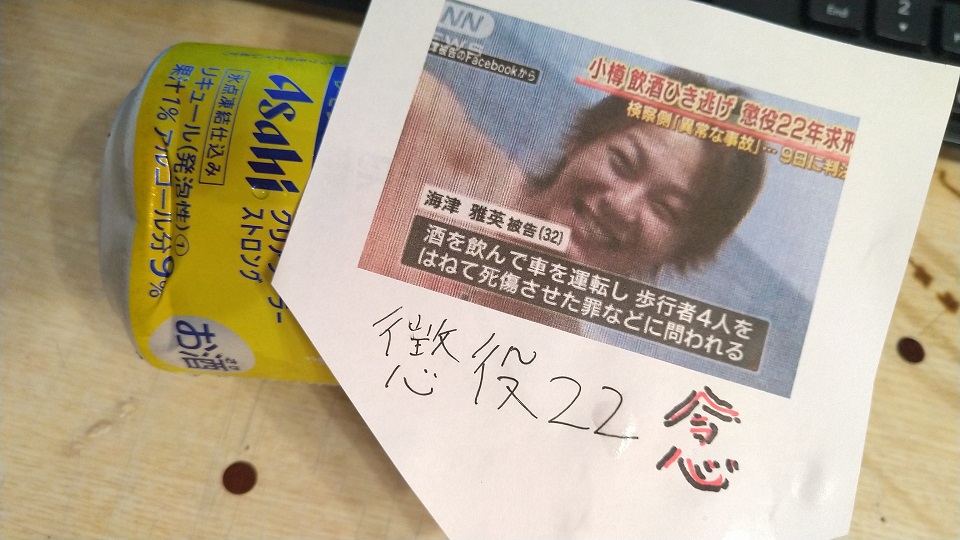 NN
NEWS
被告のFacebookから
小樽 飲酒ひき逃げ 懲役22年求刑
検察側「異常な事故」… 9日に判決
海津 雅英被告(32)
酒を飲んで車を運転し 歩行者4人を
はねて死傷させた罪などに問われる
懲役22念
Asahi
氷点凍結仕込み
リキュール(発泡性)①
果汁1% アルコール分9%
ストロング
お酒
End
2